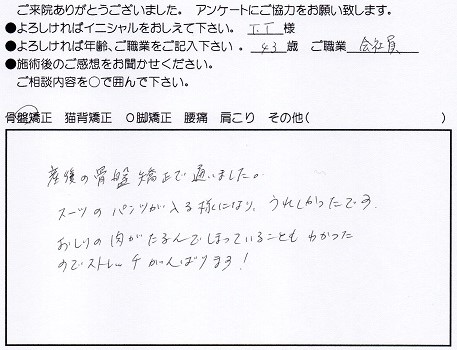 ご来院ありがとうございました。 アンケートにご協力をお願い致します。
●よろしければイニシャルをおしえて下さい。 T.T 様
●よろしければ年齢、ご職業をご記入下さい。 43 歳 ご職業 会社員
●施術後のご感想をお聞かせください。
ご相談内容を○で囲んで下さい。
骨盤矯正 猫背矯正 O脚矯正 腰痛 肩こり その他( )
産後の骨盤矯正で通いました。
スーツのパンツが入る様になり、うれしかったです。
おしりの肉がたるんでしまっていることもわかった
のでストレッチがんばります!